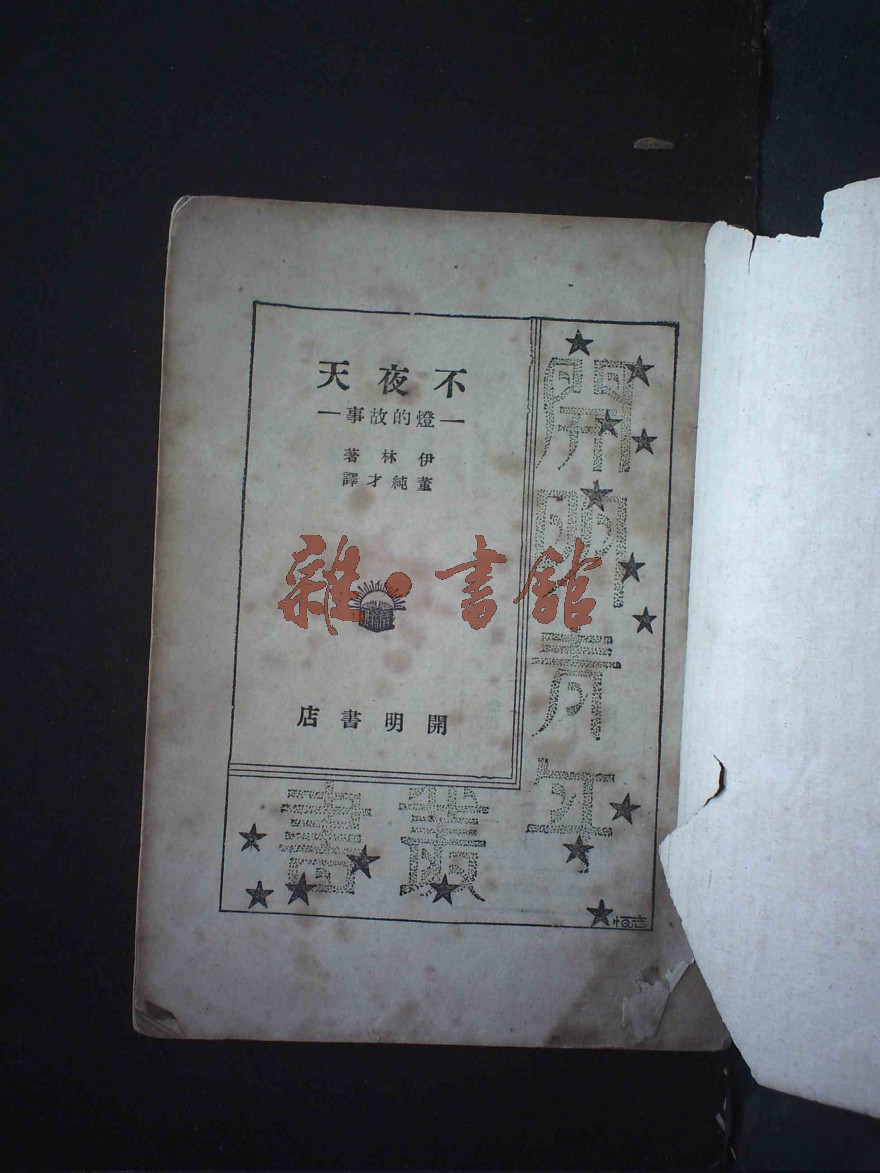 不夜天
—燈的故事—
伊林著
董純才譯
開明書店
開明青年
叢書
雜·書館